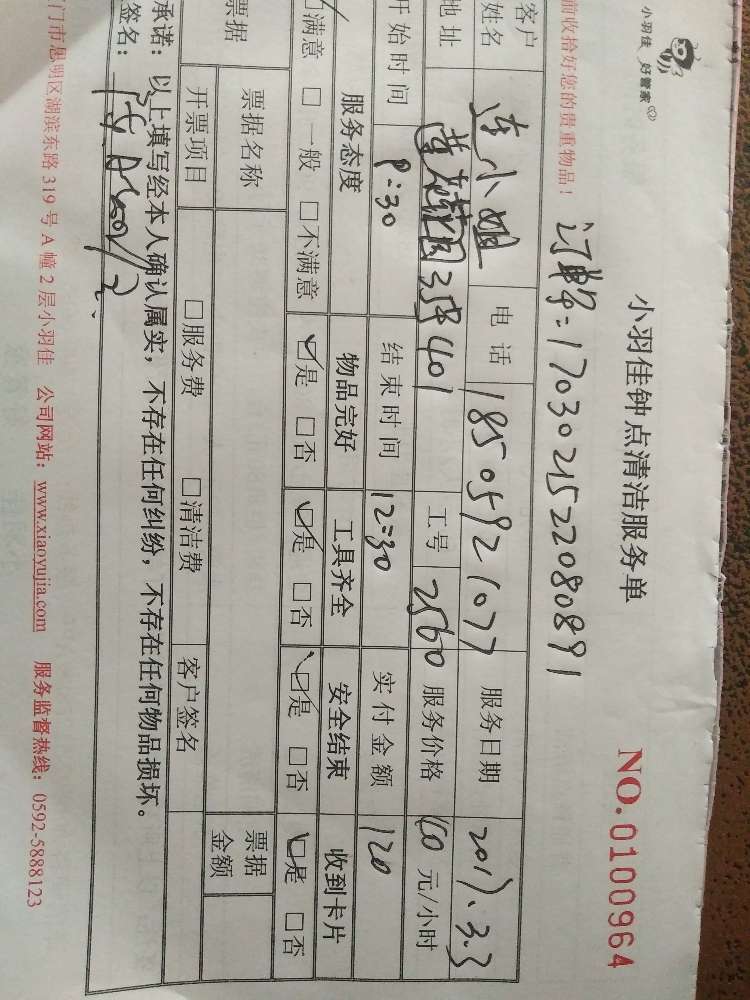 小羽佳 好管家
小羽佳钟点清洁服务单
NO.0100964
前收拾好您的贵重物品！
订单号：1703021522080891
客户姓名 连小姐 电话 18505921077 服务日期 2017.3.3
地址 35号401 工号 2560 服务价格 60 元/小时
开始时间 :30 结束时间 12:30 实付金额 120
服务态度 物品完好 工具齐全 安全结束 收到卡片
☑满意 □一般 □不满意 ☑是 □否 ☑是 □否 ☑是 □否 ☑是 □否
票据 票据名称 票据金额
开票项目 □服务费 □清洁费 客户签名
承诺：以上填写经本人确认属实，不存在任何纠纷，不存在任何物品损坏。
签名：
门市思明区湖滨东路 319 号 A 幢 2 层小羽佳 公司网站：www.xiaoyujia.com 服务监督热线：0592-5888123